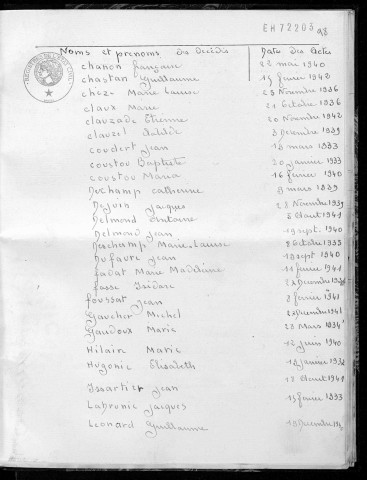 EH 72203 98
Noms et prenoms des Décédés Date des Actes
chanon françois 22 mai 1940
chastan Guillaume 15 février 1942
chèze Marie Louise 23 Novembre 1936
claux Marie 21 Octobre 1936
clauzade Etienne 20 Novembre 1942
clauzel 3 Décembre 1939
coudert jean 18 mars 1933
coustou Baptiste 20 janvier 1933
coustou Maria 16 février 1940
Duchamp catherine 9 mars 1939
Dejuin jacques 28 Novembre 1939
Delmond Antoine 5 Aout 1941
Delmond jean 19 sept. 1940
Deschamp Marie Louise 26 Octobre 1935
Dufaure jean 18 sept 1940
fadat Marie Madeleine 11 février 1941
fasse Isidore 22 Décembre
foussat jean 8 février 1941
Gaucher Michel 22 Décembre 1941
Gaudoux Marie 28 Mars 1934
Hilair Marie 12 juin 1940
Hugonie Elisabeth 18 janvier
Issartier jean 12 Aout 1941
Labrunie jacques 15 février 1933
Leonard Guillaume 18 Décembre